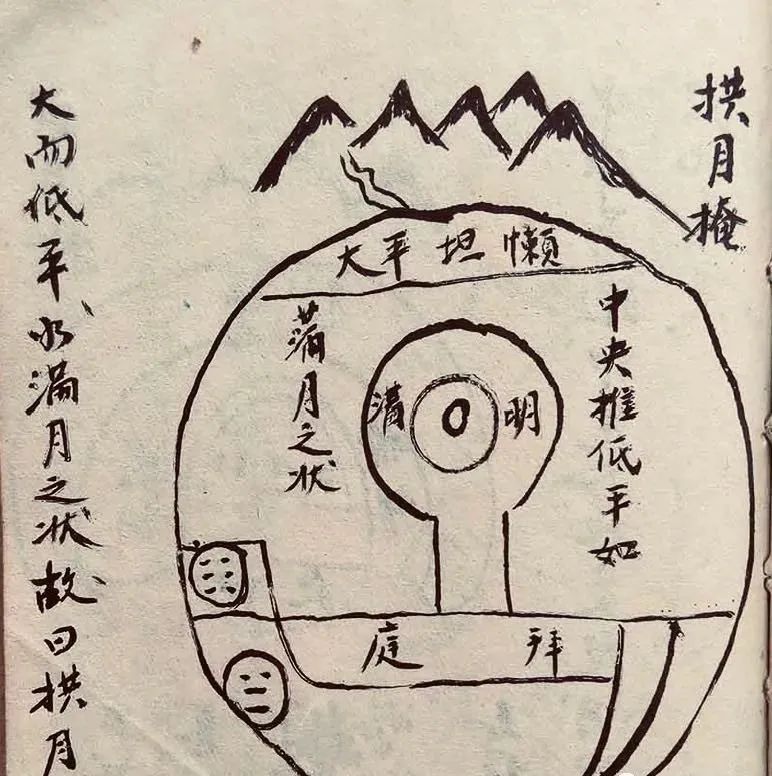 拱月掩
大而低平氹滿月之状故曰拱月
懶坦平大
中央推低平如
蒲月之状
明
清
拜庭